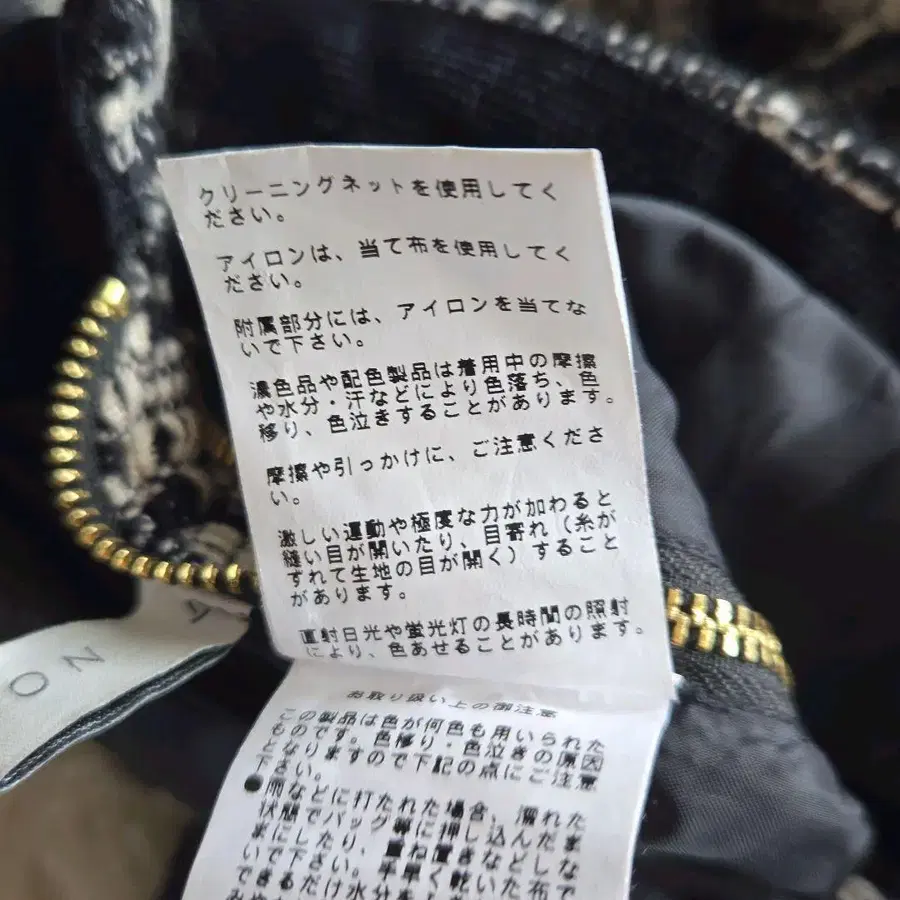 クリーニングネットを使用してく
ださい。
アイロンは、当て布を使用してく
ださい。
附属部分には、アイロンを当てな
いで下さい。
濃色品や配色製品は着用中の摩擦
や水分・汗などにより色落ち、色
移り、色泣きすることがあります。
摩擦や引っかけに、ご注意くださ
い。
激しい運動や極度な力が加わると
縫い目が開いたり、目寄れ(糸が
ずれて生地の目が開く)すること
があります。
直射日光や蛍光灯の長時間の照射
により、色あせることがあります。
お取り扱い上の御注意
この製品は色が何色も用いられた
ものです。色移り・色泣きの原因
となりますので下記の点にご注意
下さい。
●雨などに打たれた場合、濡れた
状態でバッグ等に押し込んだま
まにしたり、重ね置きなどしな
いで下さい。手早く乾いた布で
できるだけ水分を
ON